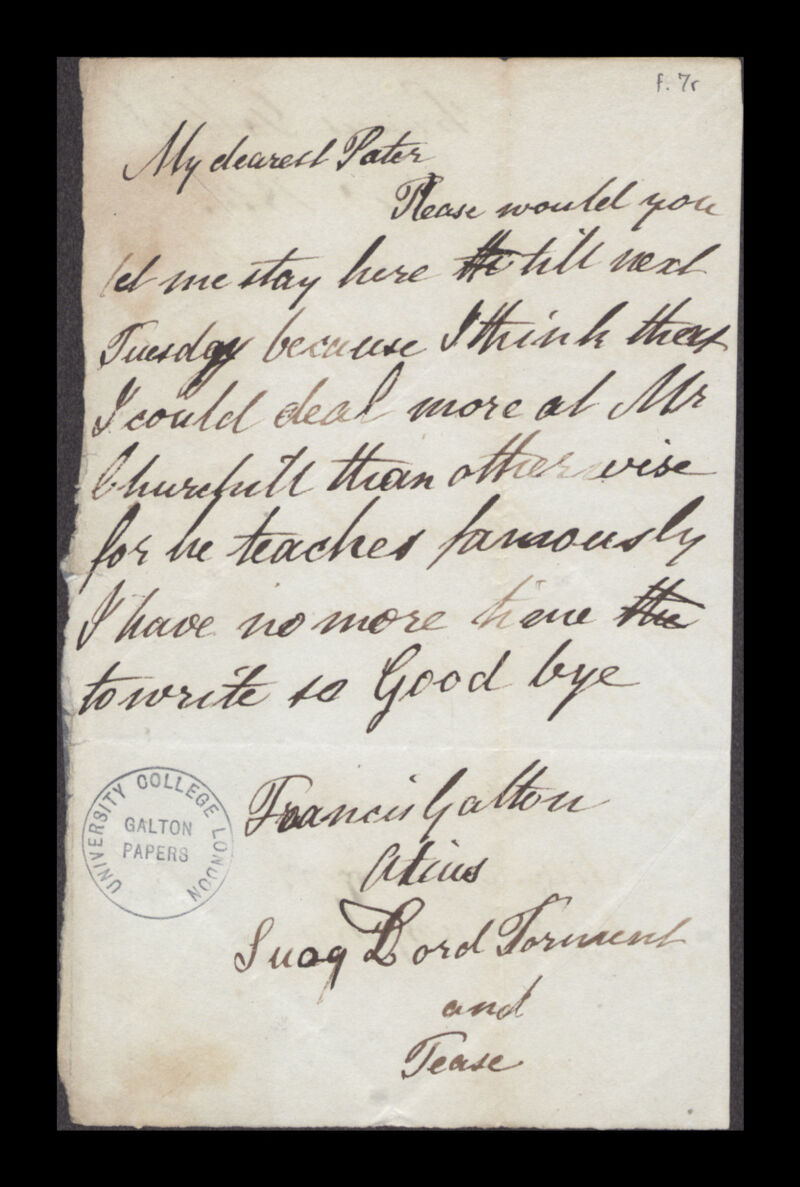 f. 7r
My dearest Pater
Please would you
let me stay here till next
Tuesday because I think that
I could deal more at Mr
Churchill than otherwise
for he teaches famously
I have no more time the
to write so Good bye
UNIVERSITY COLLEGE LONDON
GALTON
PAPERS
Francis Galton
Lord Torment
and
Tease